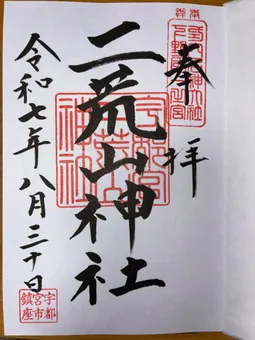 奉拝
二荒山神社
令和七年八月三十日
宇都
宮市
鎮座